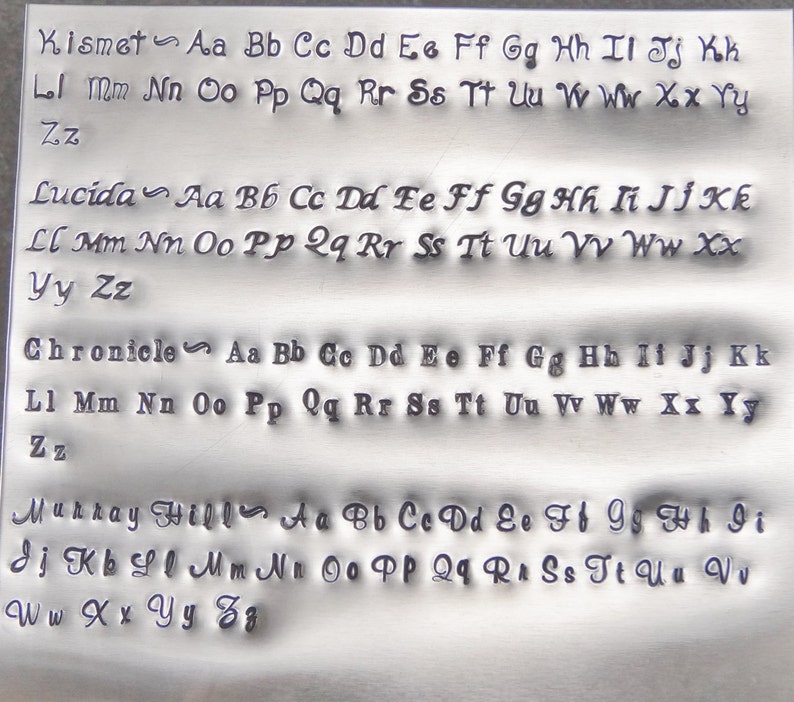 Kismet~ Aa Bb Cc Dd Ee Ff Gg Hh Il Jj Kk
Ll Mm Nn Oo Pp Qq Rr Ss Tt Uu Vv Ww Xx Yy
Zz
Lucida~ Aa Bb Cc Dd Ee Ff Gg Hh Ii Jj Kk
Ll Mm Nn Oo Pp Qq Rr Ss Tt Uu Vv Ww Xx
Yy Zz
Chronicle~ Aa Bb Cc Dd Ee Ff Gg Hh Ii Jj Kk
Ll Mm Nn Oo Pp Qq Rr Ss Tt Uu Vv Ww Xx Yy
Zz
Murray Hill~ Aa Bb Cc Dd Ee Ff Gg Hh Ii
Jj Kk Ll Mm Nn Oo Pp Qq Rr Ss Tt Uu Vv
Ww Xx Yy Zz